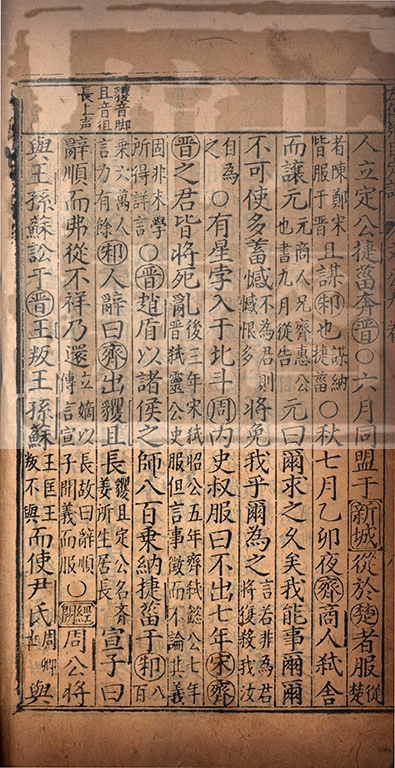 人立定公捷菑奔晉〇六月同盟于新城從於楚者服從楚
者陳鄭宋皆服于晉且謀邾也謀納捷菑〇秋七月乙卯夜齊商人弒舍
而讓元元商人兄齊惠公元也書九月從告元曰爾求之久矣我能事爾爾
不可使多蓄憾不為君則憾恨多將免我乎爾為之言若非為君將復殺我汝
自為〇有星孛入于北斗周內史叔服曰不出七年宋齊
晉之君皆將死亂後三年宋弒昭公五年齊弒懿公七年晉弒靈公史服但言事徵而不論其義
固非末學所得詳言〇晉趙盾以諸侯之師八百乘納捷菑于邾八百
貜音脚
且音徂
長上声
乘六萬人言力有餘邾人辭曰齊出貜且長貜且定公名齊姜所生居長宣子曰
辭順而弗從不祥乃還立嫡以長故曰辭順傳言宣子聞義而服〇經闕周公將
與王孫蘇訟于晉王叛王孫蘇王匡王叛不與而使尹氏周卿士與